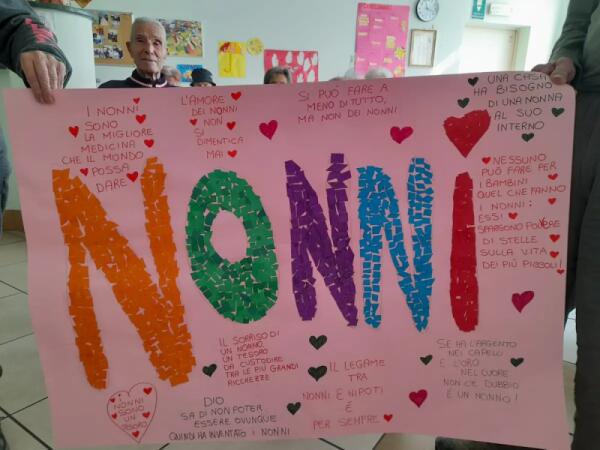 I NONNI
SONO
LA MIGLIORE
MEDICINA
CHE IL MONDO
POSSA
DARE
L'AMORE
DEI NONNI
NON
SI
DIMENTICA
MAI
SI PUÒ FARE A
MENO DI TUTTO,
MA NON DEI NONNI
UNA CASA
HA BISOGNO
DI UNA NONNA
AL SUO
INTERNO
NESSUNO
PUÒ FARE PER
I BAMBINI
QUEL CHE FANNO
I NONNI:
ESSI
SPARGONO POLVERE
DI STELLE
SULLA VITA
DEI PIÙ PICCOLI!
NONNI
IL SORRISO DI
UN NONNO,
UN TESORO
DA CUSTODIRE
TRA LE PIÙ GRANDI
RICCHEZZE
IL LEGAME
TRA
NONNI E NIPOTI
È
PER SEMPRE
SE HA L'ARGENTO
NEI CAPELLI
E L'ORO
NEL CUORE
NON C'È DUBBIO
È UN NONNO!
I NONNI
SONO UN
TESORO
DIO
SA DI NON POTER
ESSERE OVUNQUE
QUINDI HA INVENTATO I NONNI